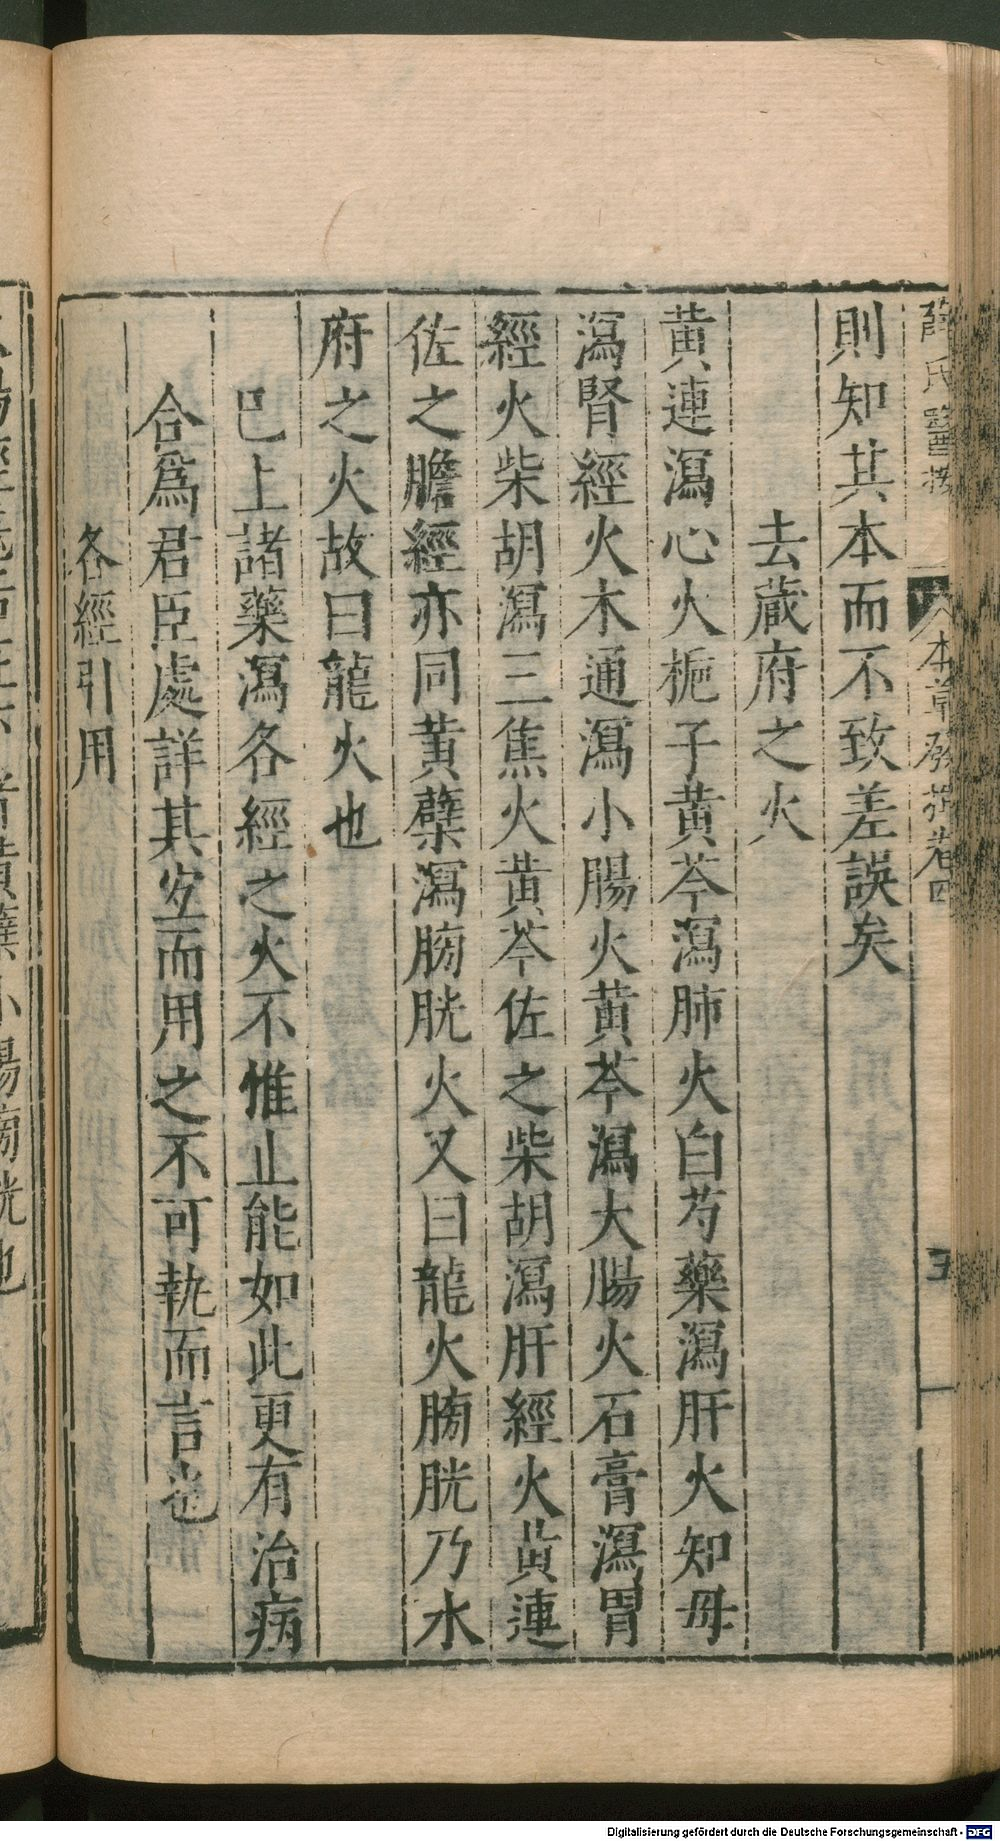 薛氏醫按 本草發揮卷四 五
則知其本而不致差誤矣
去藏府之火
黄連瀉心火梔子黄芩瀉肺火白芍藥瀉肝火知母
瀉腎經火木通瀉小腸火黄芩瀉大腸火石膏瀉胃
經火柴胡瀉三焦火黄芩佐之柴胡瀉肝經火黄連
佐之膽經亦同黄蘗瀉膀胱火又曰龍火膀胱乃水
府之火故曰龍火也
巳上諸藥瀉各經之火不惟止能如此更有治病
合爲君臣處詳其宐而用之不可執而言也
各經引用
Digitalisierung gefördert durch die Deutsche Forschungsgemeinschaft - DFG